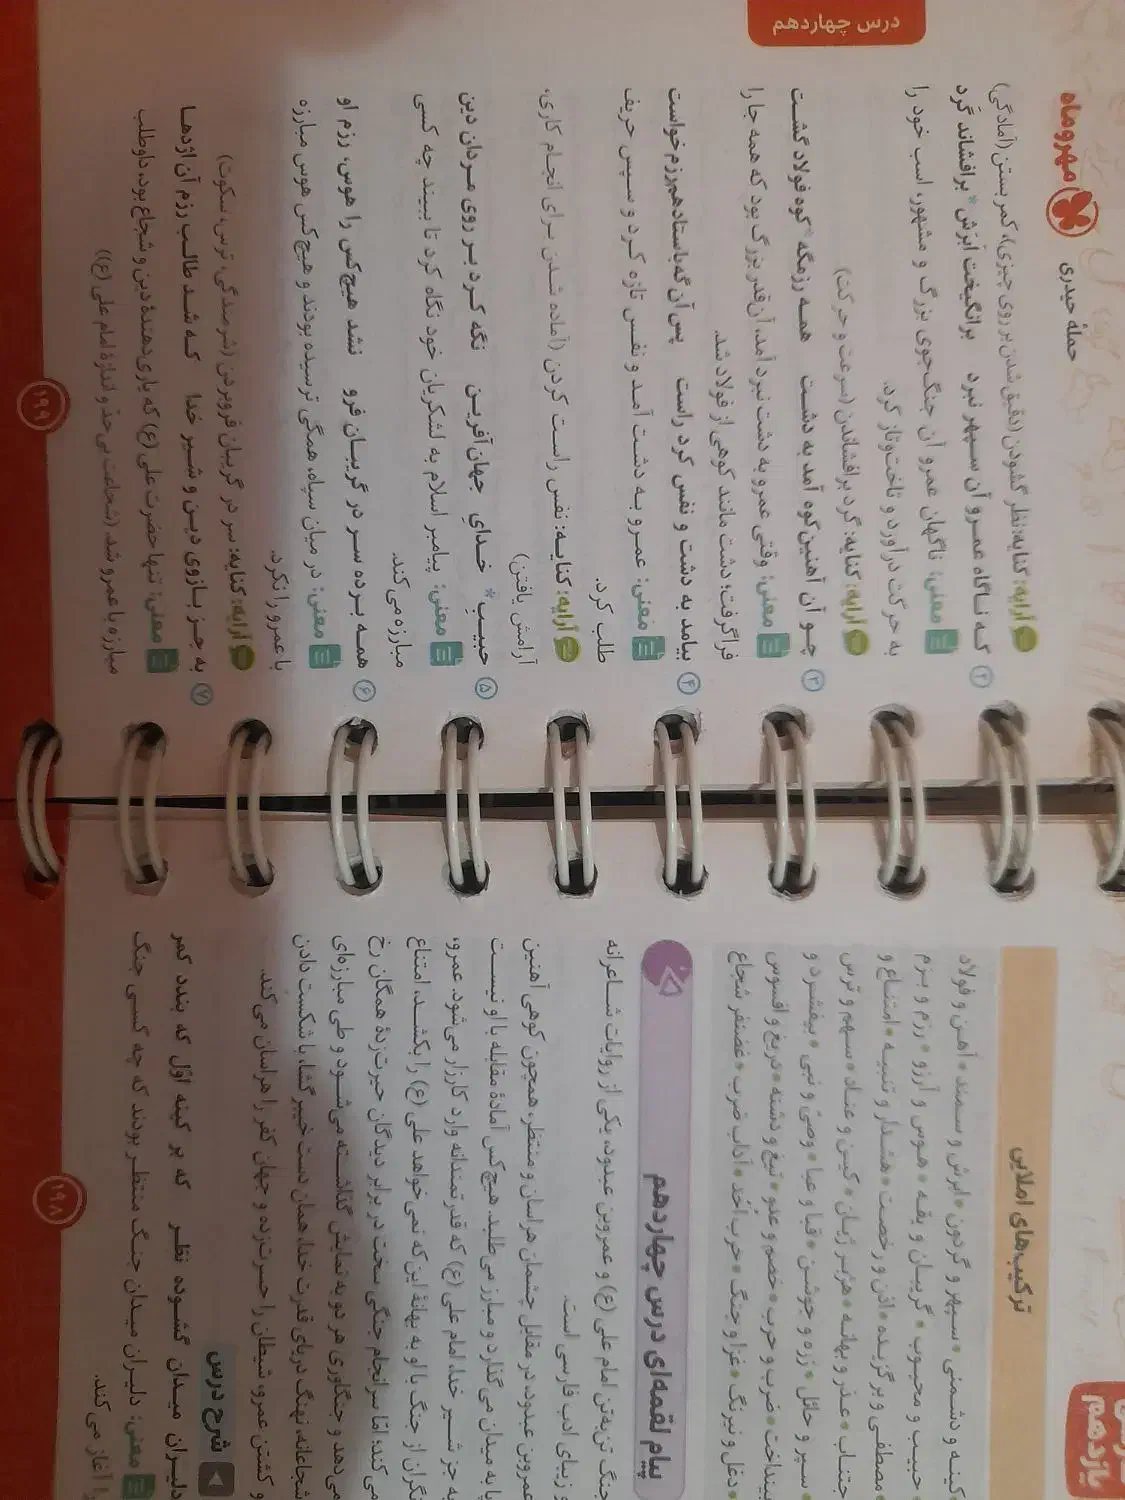 ترکیب‌های املایی
کینه و دشمنی • سپهر و گردون • ابرش و سمند • آهن و فولاد
• حبیب و محبوب • گریبان و یقه • هوس و آرزو • رزم و بزم
• مصطفی و برگزیده • اذن و رخصت • هشدار و تنبیه • امتناع و
اجتناب • عذر و بهانه • هژبر ژیان • کین و عناد • سهم و ترس
• سپر و حائل • زره و جوشن • قبا و عبا • وصی و نبی • بیفشرد و
بینداخت • ضرب و حرب • خصم و عدو • تیغ و دشنه • دریغ و افسوس
• دغل و نیرنگ • غزا و جنگ • حرب اُحُد • آداب ضرب • غضنفر شجاع
پیام لقمه‌ای درس چهاردهم
جنگ تن‌به‌تن امام علی (ع) و عمروبن عبدود، یکی از روایات شاعرانه
و زیبای ادب فارسی است.
عمروبن عبدود، در مقابل چشمان هراسان و منتظر، همچون کوهی آهنین
پا به میدان می‌گذارد و مبارز می‌طلبد. هیچ‌کس آمادهٔ مقابله با او نیست
به جز شیر خدا، امام علی (ع) که قدرتمندانه وارد کارزار می‌شود. عمرو،
نگران از جنگ با او به بهانهٔ این‌که نمی‌خواهد علی (ع) را بکشد، امتناع
می‌کند؛ اما سرانجام جنگی سخت در برابر دیدگان حیرت‌زدهٔ همگان رخ
می‌دهد و جنگاوری هر دو به نمایش گذاشته می‌شود و طی مبارزه‌ای
شجاعانه، نهنگ دریای قدرت خدا، همان دست خیبرگشا، با شکست دادن
و کشتن عمرو، شیطان را حسرت‌زده و جهان کفر را هراسان می‌کند.
شرح درس
دلیران میدان گشوده نظر که بر کینه اوّل که بندد کمر
معنی: دلیران میدان جنگ منتظر بودند که چه کسی جنگ
را آغاز می‌کند.
۱۹۸
درس چهاردهم
مهروماه
حملهٔ حیدری
آرایه: کنایه: نظر گشودن (دقیق شدن بر روی چیزی)، کمر بستن (آمادگی)
۲ که ناگاه عمرو آن سپهر نبرد برانگیخت ابرش* برافشاند گرد
معنی: ناگهان عمرو آن جنگ‌جوی بزرگ و مشهور، اسب خود را
به حرکت درآورد و تاخت‌وتاز کرد.
آرایه: کنایه: گرد برافشاندن (سرعت و حرکت)
۳ چو آن آهنین کوه آمد به دشت همه رزمگه کوه فولاد گشت
معنی: وقتی عمرو به دشت نبرد آمد، آن‌قدر بزرگ بود که همه جا را
فراگرفت؛ دشت مانند کوهی از فولاد شد.
۴ بیامد به دشت و نفس کرد راست پس آن گه باستاد هم‌رزم خواست
معنی: عمرو به دشت آمد و نفس تازه کرد و سپس حریف
طلب کرد.
آرایه: کنایه: نفس راست کردن (آماده شدن برای انجام کاری،
آرامش یافتن)
۵ حبیب* خدایِ جهان‌آفرین نگه کرد بر روی مردان دین
معنی: پیامبر اسلام به لشکریان خود نگاه کرد تا ببیند چه کسی
مبارزه می‌کند.
۶ همه برده سر در گریبان فرو نشد هیچ‌کس را هوس، رزم او
معنی: در میان سپاه، همگی ترسیده بودند و هیچ‌کس هوس مبارزه
با عمرو را نکرد.
آرایه: کنایه: سر در گریبان فروبردن (شرمندگی، ترس، سکوت)
۷ به جز بازوی دین و شیر خدا که شد طالب رزم آن اژدها
معنی: تنها حضرت علی (ع) که یاری‌دهندهٔ دین و شجاع بود، داوطلب
مبارزه با عمرو شد. (شجاعت بی حدّ و اندازهٔ امام علی (ع))
۱۹۹
یازدهم